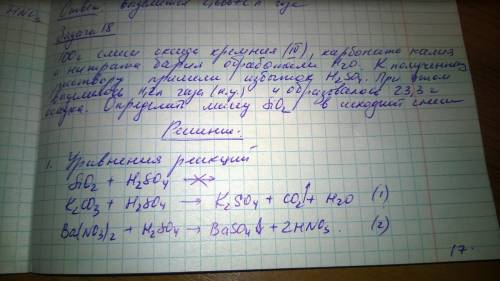 HNO3 Ответ выделится г газа
Задача 18
100г смеси оксида кремния (IV), карбоната калия
и нитрата бария обработали H2O. К полученному
раствору прилили избыток H2SO4. При этом
выделилось 11,2л газа (н.у.) и образовалось 23,3 г
осадка. Определить массу SiO2 в исходной смеси
Решение:
1. Уравнения реакций
SiO2 + H2SO4 ↛
K2CO3 + H2SO4 → K2SO4 + CO2↑ + H2O (1)
Ba(NO3)2 + H2SO4 → BaSO4↓ + 2HNO3. (2)
17.